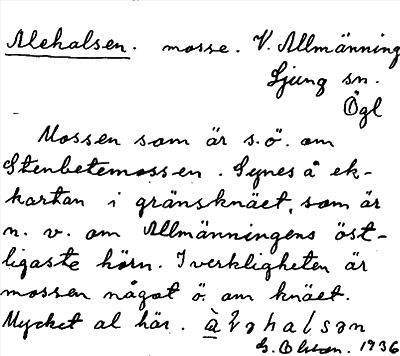 Alehalsen. mosse. V. Allmänning
Ljung sn.
Ögl
Mossen som är s.ö. om
Stenbetemossen. Synes å ek-
kartan i gränsknäet, som är
n. v. om Allmänningens öst-
ligaste hörn. I verkligheten är
mossen något ö. om knäet.
Mycket al här.
G. Olsson. 1936